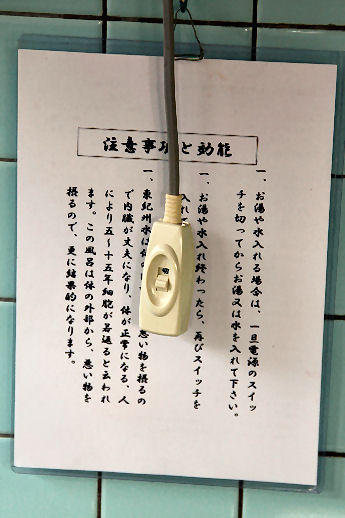 注意事項と効能
一、お湯や水入れる場合は、一旦電源のスイッ
チを切ってからお湯又は水を入れて下さい。
一、お湯や水入れ終わったら、再びスイッチを
入れて
一、東紀州水は体の 悪い物を摂るの
で内臓が丈夫になり、体が正常になる、人
により五〜十五年細胞が若返ると云われ
ます。この風呂は体の外部から、悪い物を
摂るので、更に結果的になります。